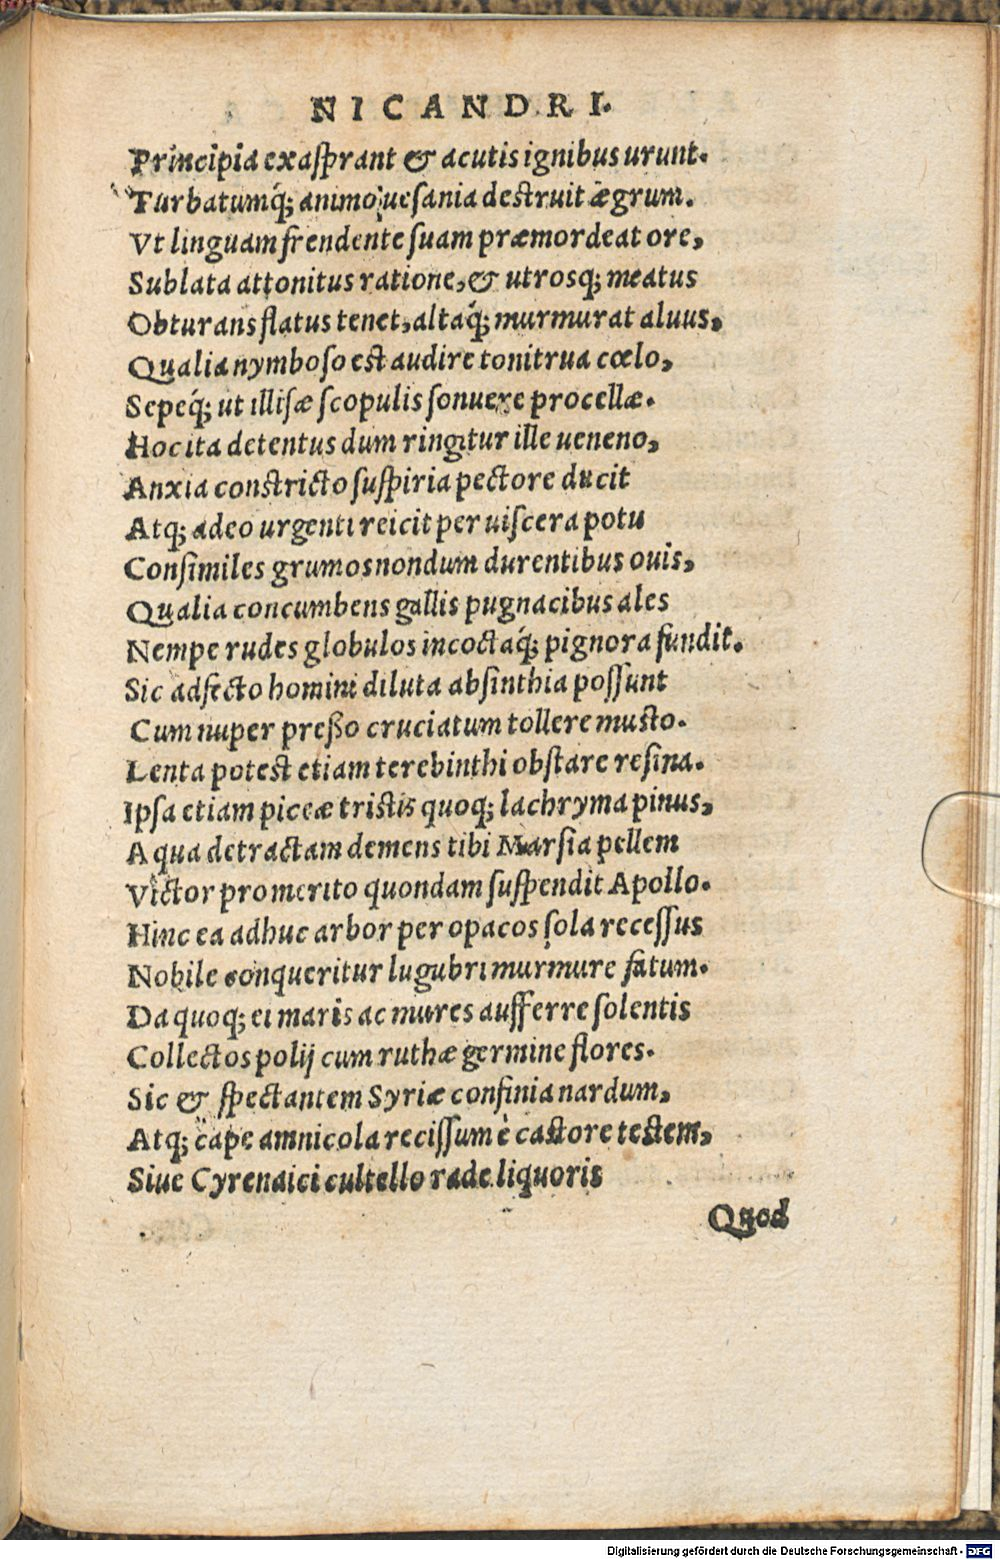 NICANDRI.
Principia exasprant & acutis ignibus urunt.
Turbatumq́; animo uesania destruit ægrum.
Vt linguam frendente suam præmordeat ore,
Sublata attonitus ratione, & utrosq; meatus
Obturans flatus tenet, altaq́; murmurat aluus,
Qualia nymboso est audire tonitrua cœlo,
Sepeq́; ut illisæ scopulis sonuere procellæ.
Hoc ita detentus dum ringitur ille ueneno,
Anxia constricto suspiria pectore ducit
Atq; adeo urgenti reicit per uiscera potu
Consimiles grumos nondum durentibus ouis,
Qualia concumbens gallis pugnacibus ales
Nempe rudes globulos incoctaq́; pignora fundit.
Sic adfecto homini diluta absinthia possunt
Cum nuper preßo cruciatum tollere musto.
Lenta potest etiam terebinthi obstare resina.
Ipsa etiam piceæ tristis quoq; lachryma pinus,
A qua detractam demens tibi Marsia pellem
Victor pro merito quondam suspendit Apollo.
Hinc ea adhuc arbor per opacos sola recessus
Nobile conqueritur lugubri murmure fatum.
Da quoq; ei maris ac mures aufferre solentis
Collectos polij cum ruthæ germine flores.
Sic & spectantem Syriæ confinia nardum,
Atq; cape amnicola recissum è castore testem,
Siue Cyrenaici cultello rade liquoris
Quod
Digitalisierung gefördert durch die Deutsche Forschungsgemeinschaft - DFG